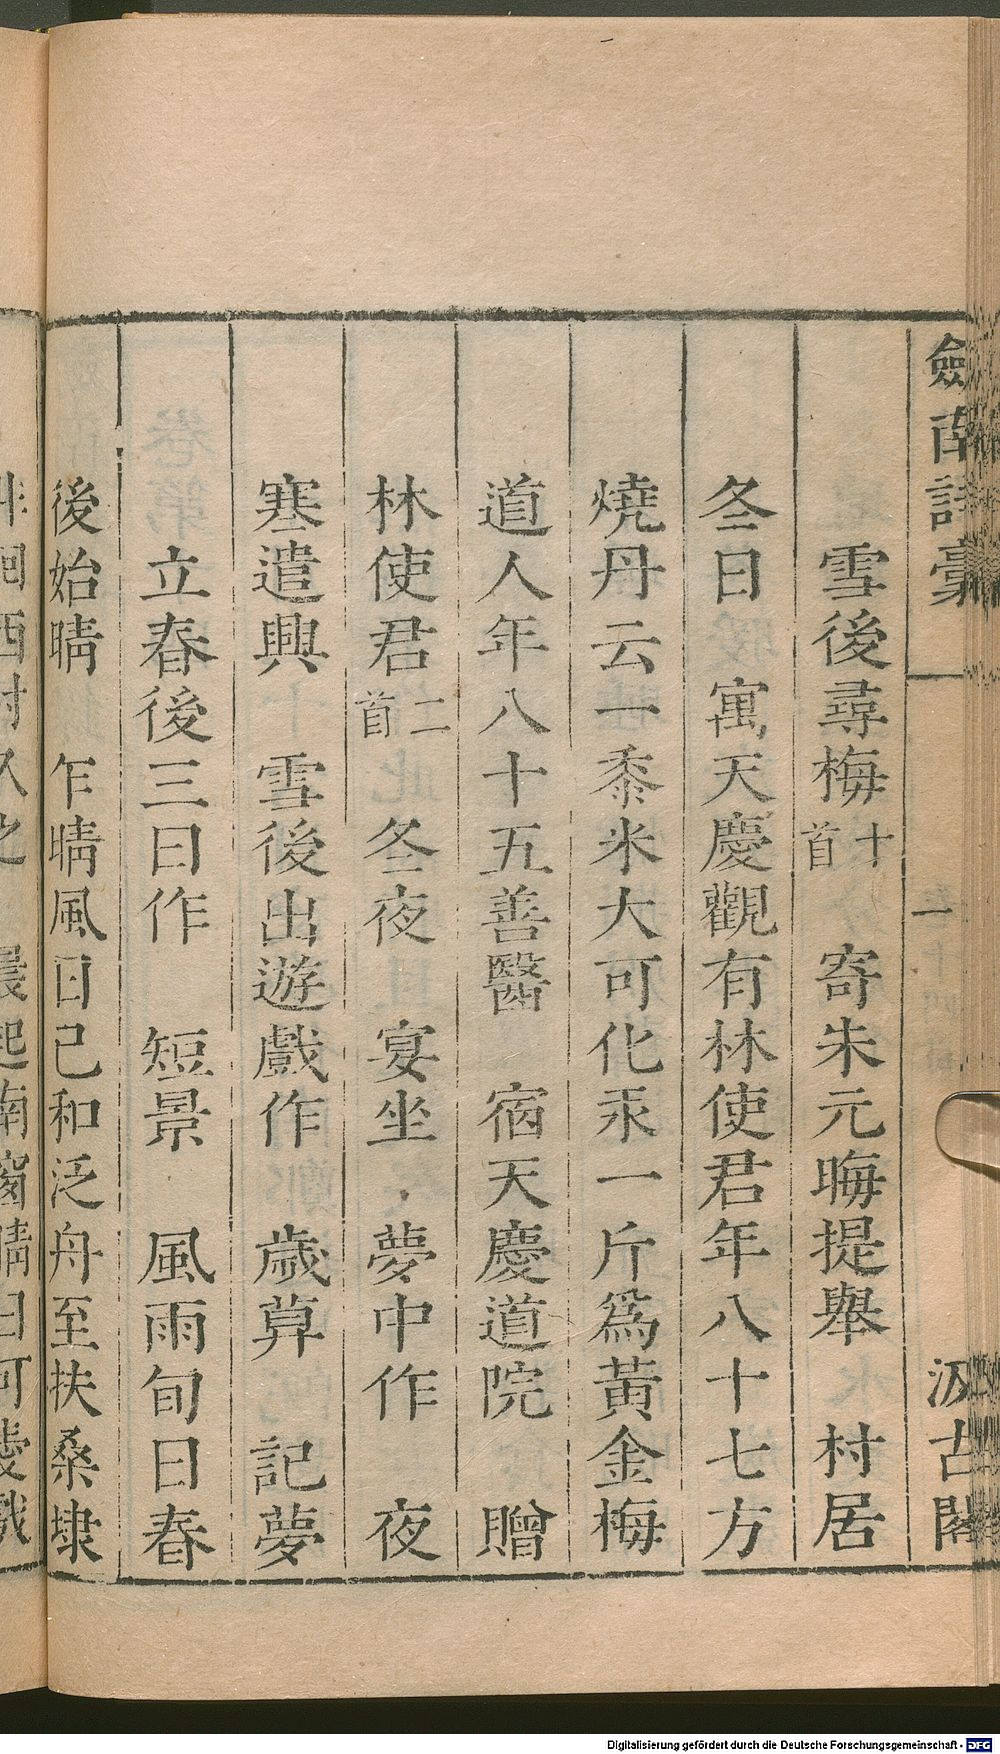 劍南詩稾 一 汲古閣
雪後尋梅十首 寄朱元晦提舉 村居
冬日 寓天慶觀有林使君年八十七方
燒丹云一黍米大可化汞一斤爲黃金梅
道人年八十五善醫 宿天慶道院 贈
林使君二首 冬夜 宴坐 夢中作 夜
寒遣興 雪後出遊戲作 歲草 記夢
立春後三日作 短景 風雨旬日春
後始晴 乍晴風日已和泛舟至扶桑埭
徊西村久之 晨起南窗晴日可愛戲
Digitalisierung gefördert durch die Deutsche Forschungsgemeinschaft - DFG